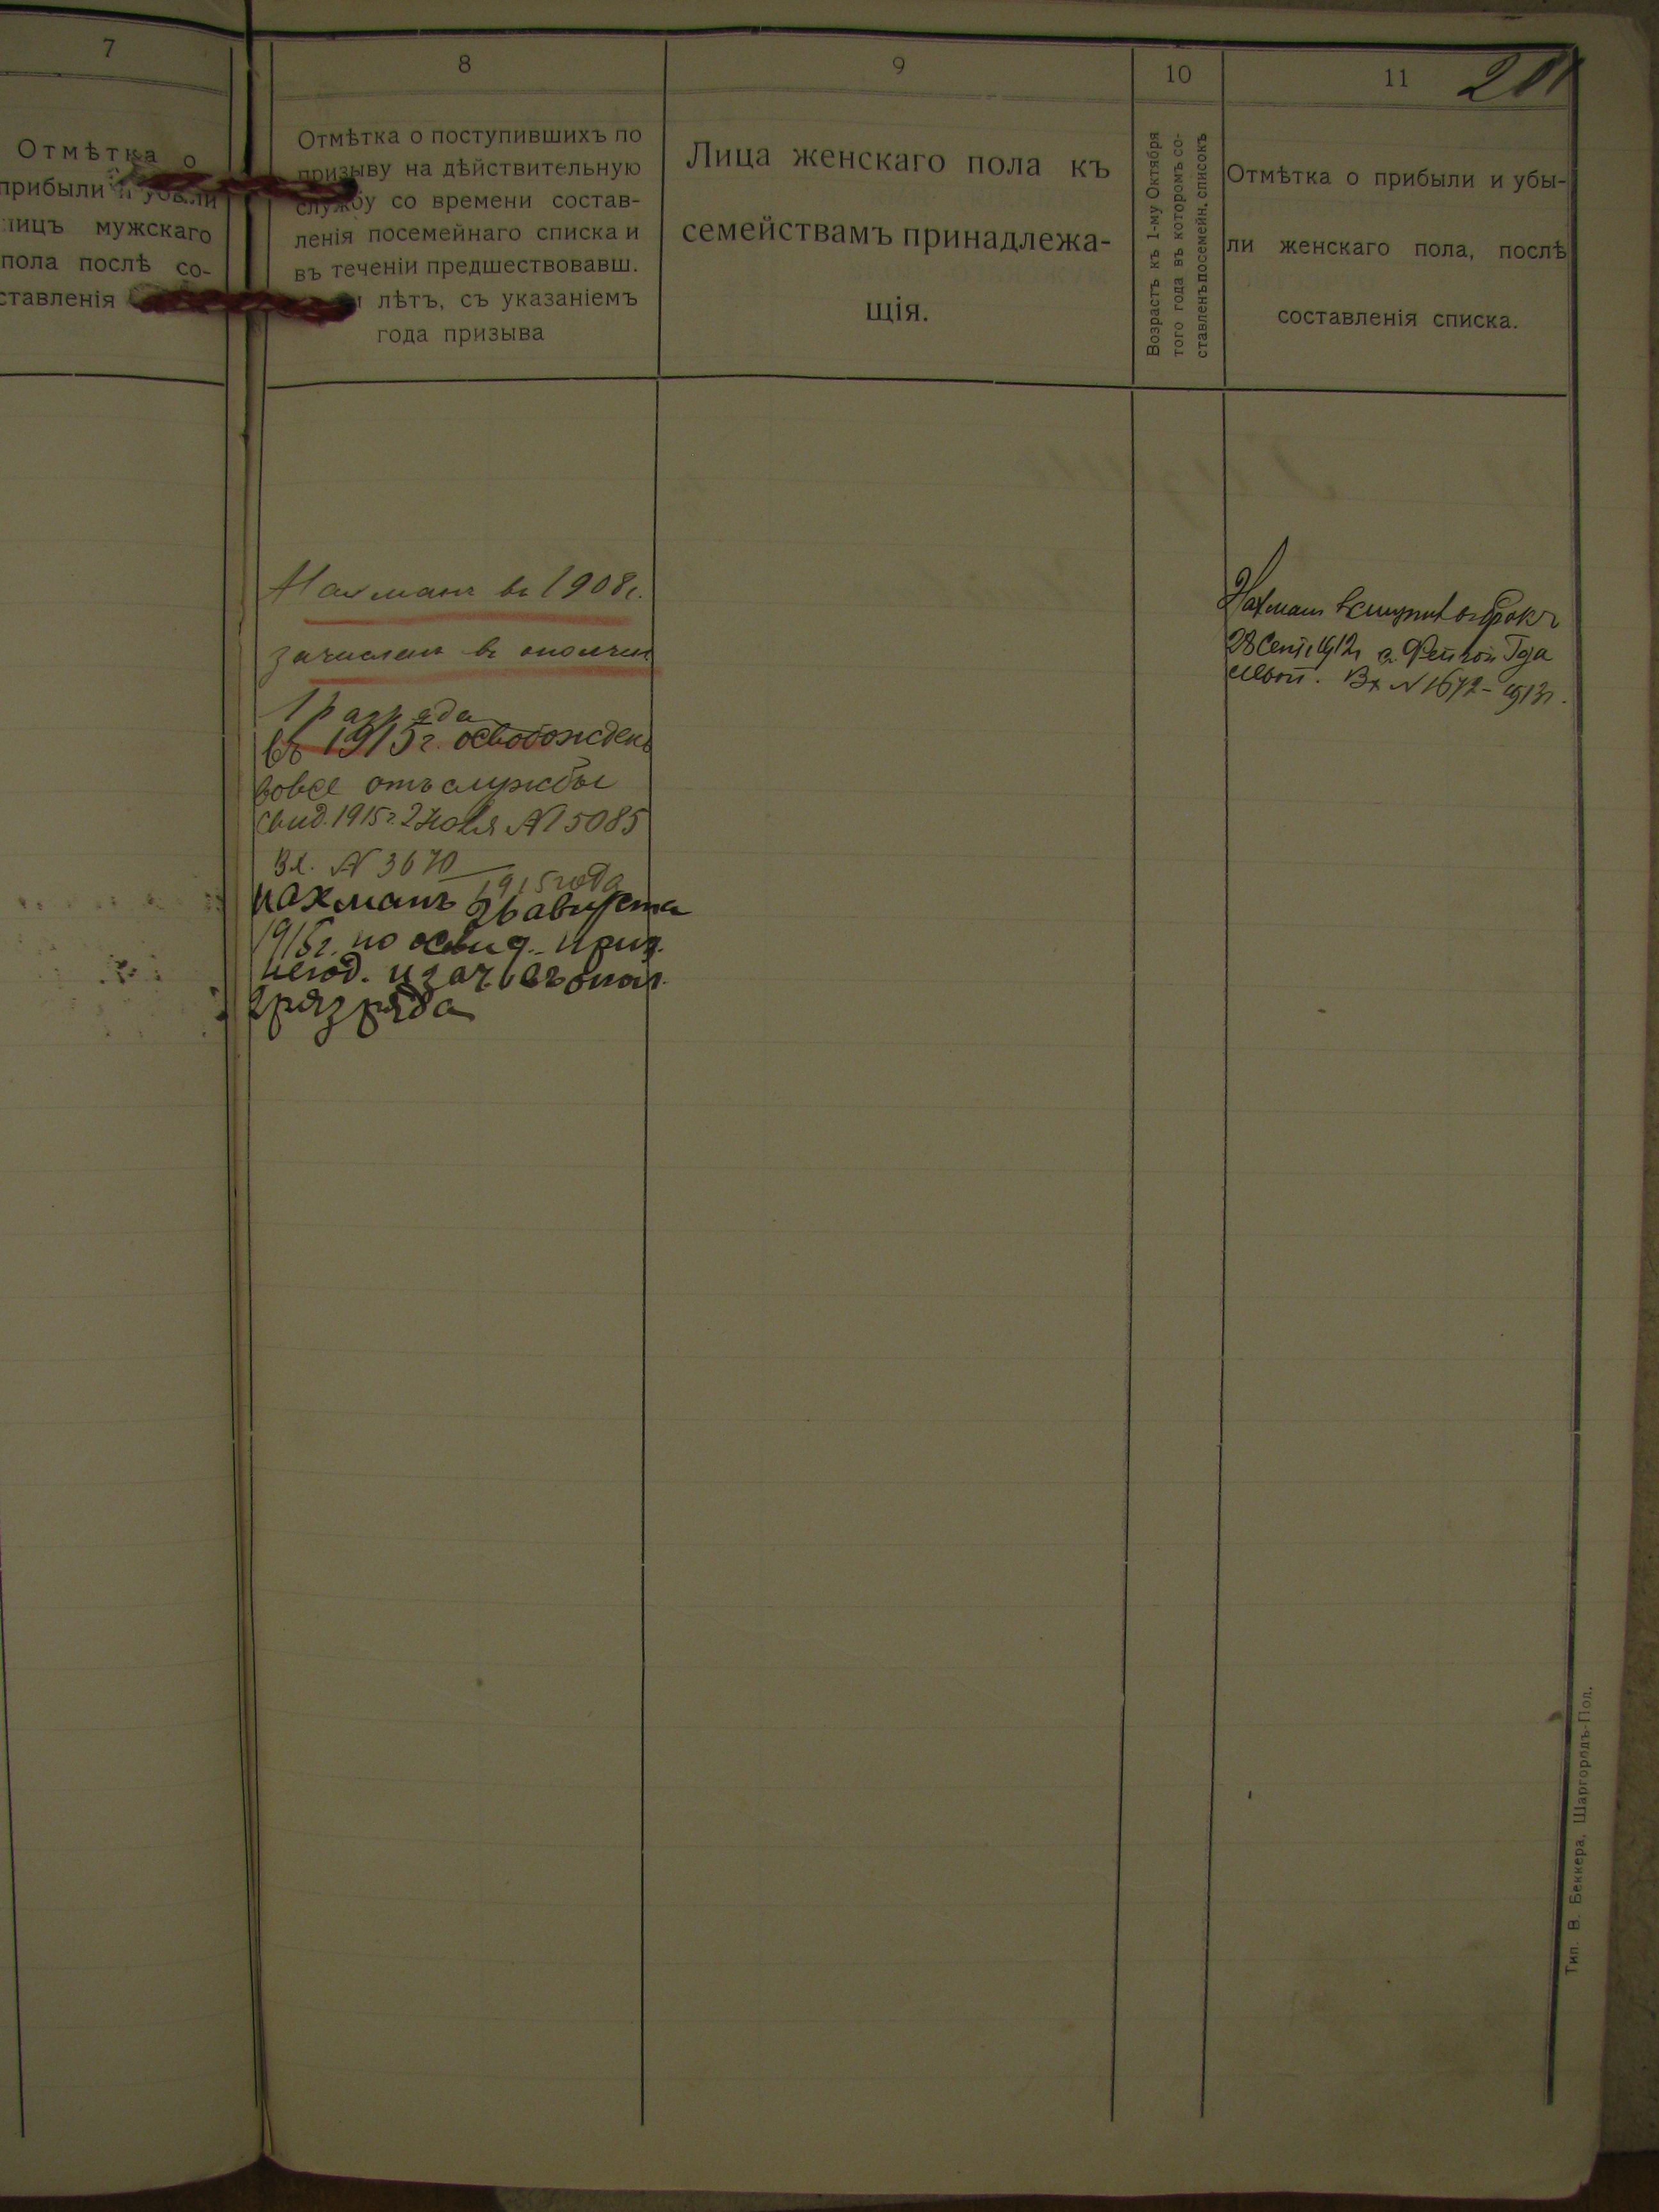 7
Отмѣтка о
прибыли и убыли
лицъ мужскаго
пола послѣ со-
ставленія
8
Отмѣтка о поступившихъ по
призыву на дѣйствительную
службу со времени состав-
ленія посемейнаго списка и
въ теченіи предшествовавш.
лѣтъ, съ указаніемъ
года призыва
9
Лица женскаго пола къ
семействамъ принадлежа-
щія.
10
Возрастъ къ 1-му Октября
того года въ которомъ со-
ставленъ посемейн. списокъ
11
Отмѣтка о прибыли и убы-
ли женскаго пола, послѣ
составленія списка.
Нахманъ въ 1908 г.
зачисленъ въ ополчен
1 разряда
въ 1915 г. освобожденъ
вовсе отъ службы
свид. 1915 г. 2 Июля № 5085
Вх. № 3670
1915 года
Нахманъ 26 августа
1915 г. по освид. призн.
негод. и зач. въ опол.
2 разряда
Нахманъ вступилъ въ бракъ
28 Сент. 1912 г. съ Фейгой Гда
Вх № 1672 - 1913 г.
Тип. В. Беккера, Шаргородъ-Пол.